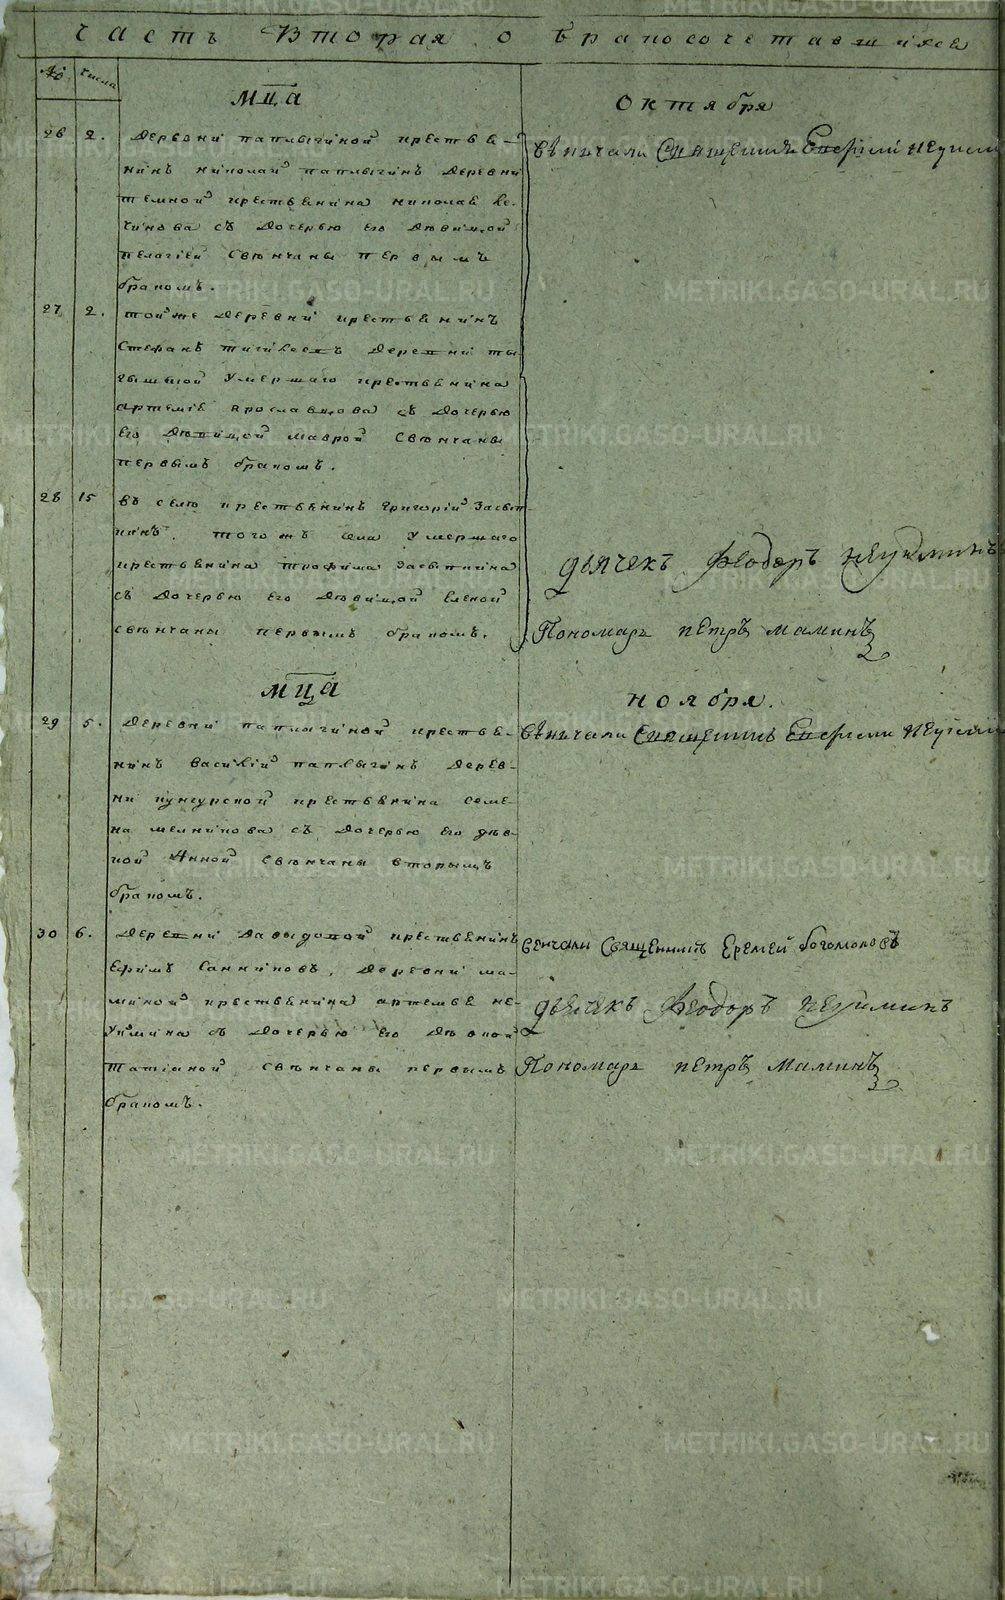 часть вторая о бракосочетавшихся
№ числа
мца октября
26 2. деревни паплыгиной крестья-
нинъ николай паплыгинъ деревни
темной крестьянина николая
съ дочерью его девицой
пелагiей свѣнчаны первымъ
бракомъ.
27 2. тойже деревни крестьянинъ
стефанъ деревни
умершаго крестьянина
ярославцова съ дочерью
его дѣвицой маврой свѣнчаны
первымъ бракомъ.
28 15 въ селѣ крестьянинъ григорiй
тогожъ села умершаго
крестьянина трофима засыпкина
съ дочерью его дѣвицой еленой
свѣнчаны первымъ бракомъ.
вѣнчали священникъ
дьячекъ Феодоръ неуйминъ
Пономарь петръ маминъ
мца ноября.
29 5. деревни паплыгиной крестья-
нинъ василiй паплыгинъ дерев-
ни кунгурской крестьянина семе-
на мелникова съ дочерью его дѣв-
кой Анной свѣнчаны вторымъ
бракомъ.
вѣнчали священникъ
30 6. деревни давыдовой крестьянинъ
ефимъ санниковъ, деревни ма-
миной крестьянина артемья не-
уймина съ дочерью его дѣвкой
татiаной свѣнчаны первымъ
бракомъ.
венчали Священникъ Еремей богомоловъ
дьячекъ Феодоръ неуйминъ
Пономарь петръ Маминъ
METRIKI.GASO-URAL.RU